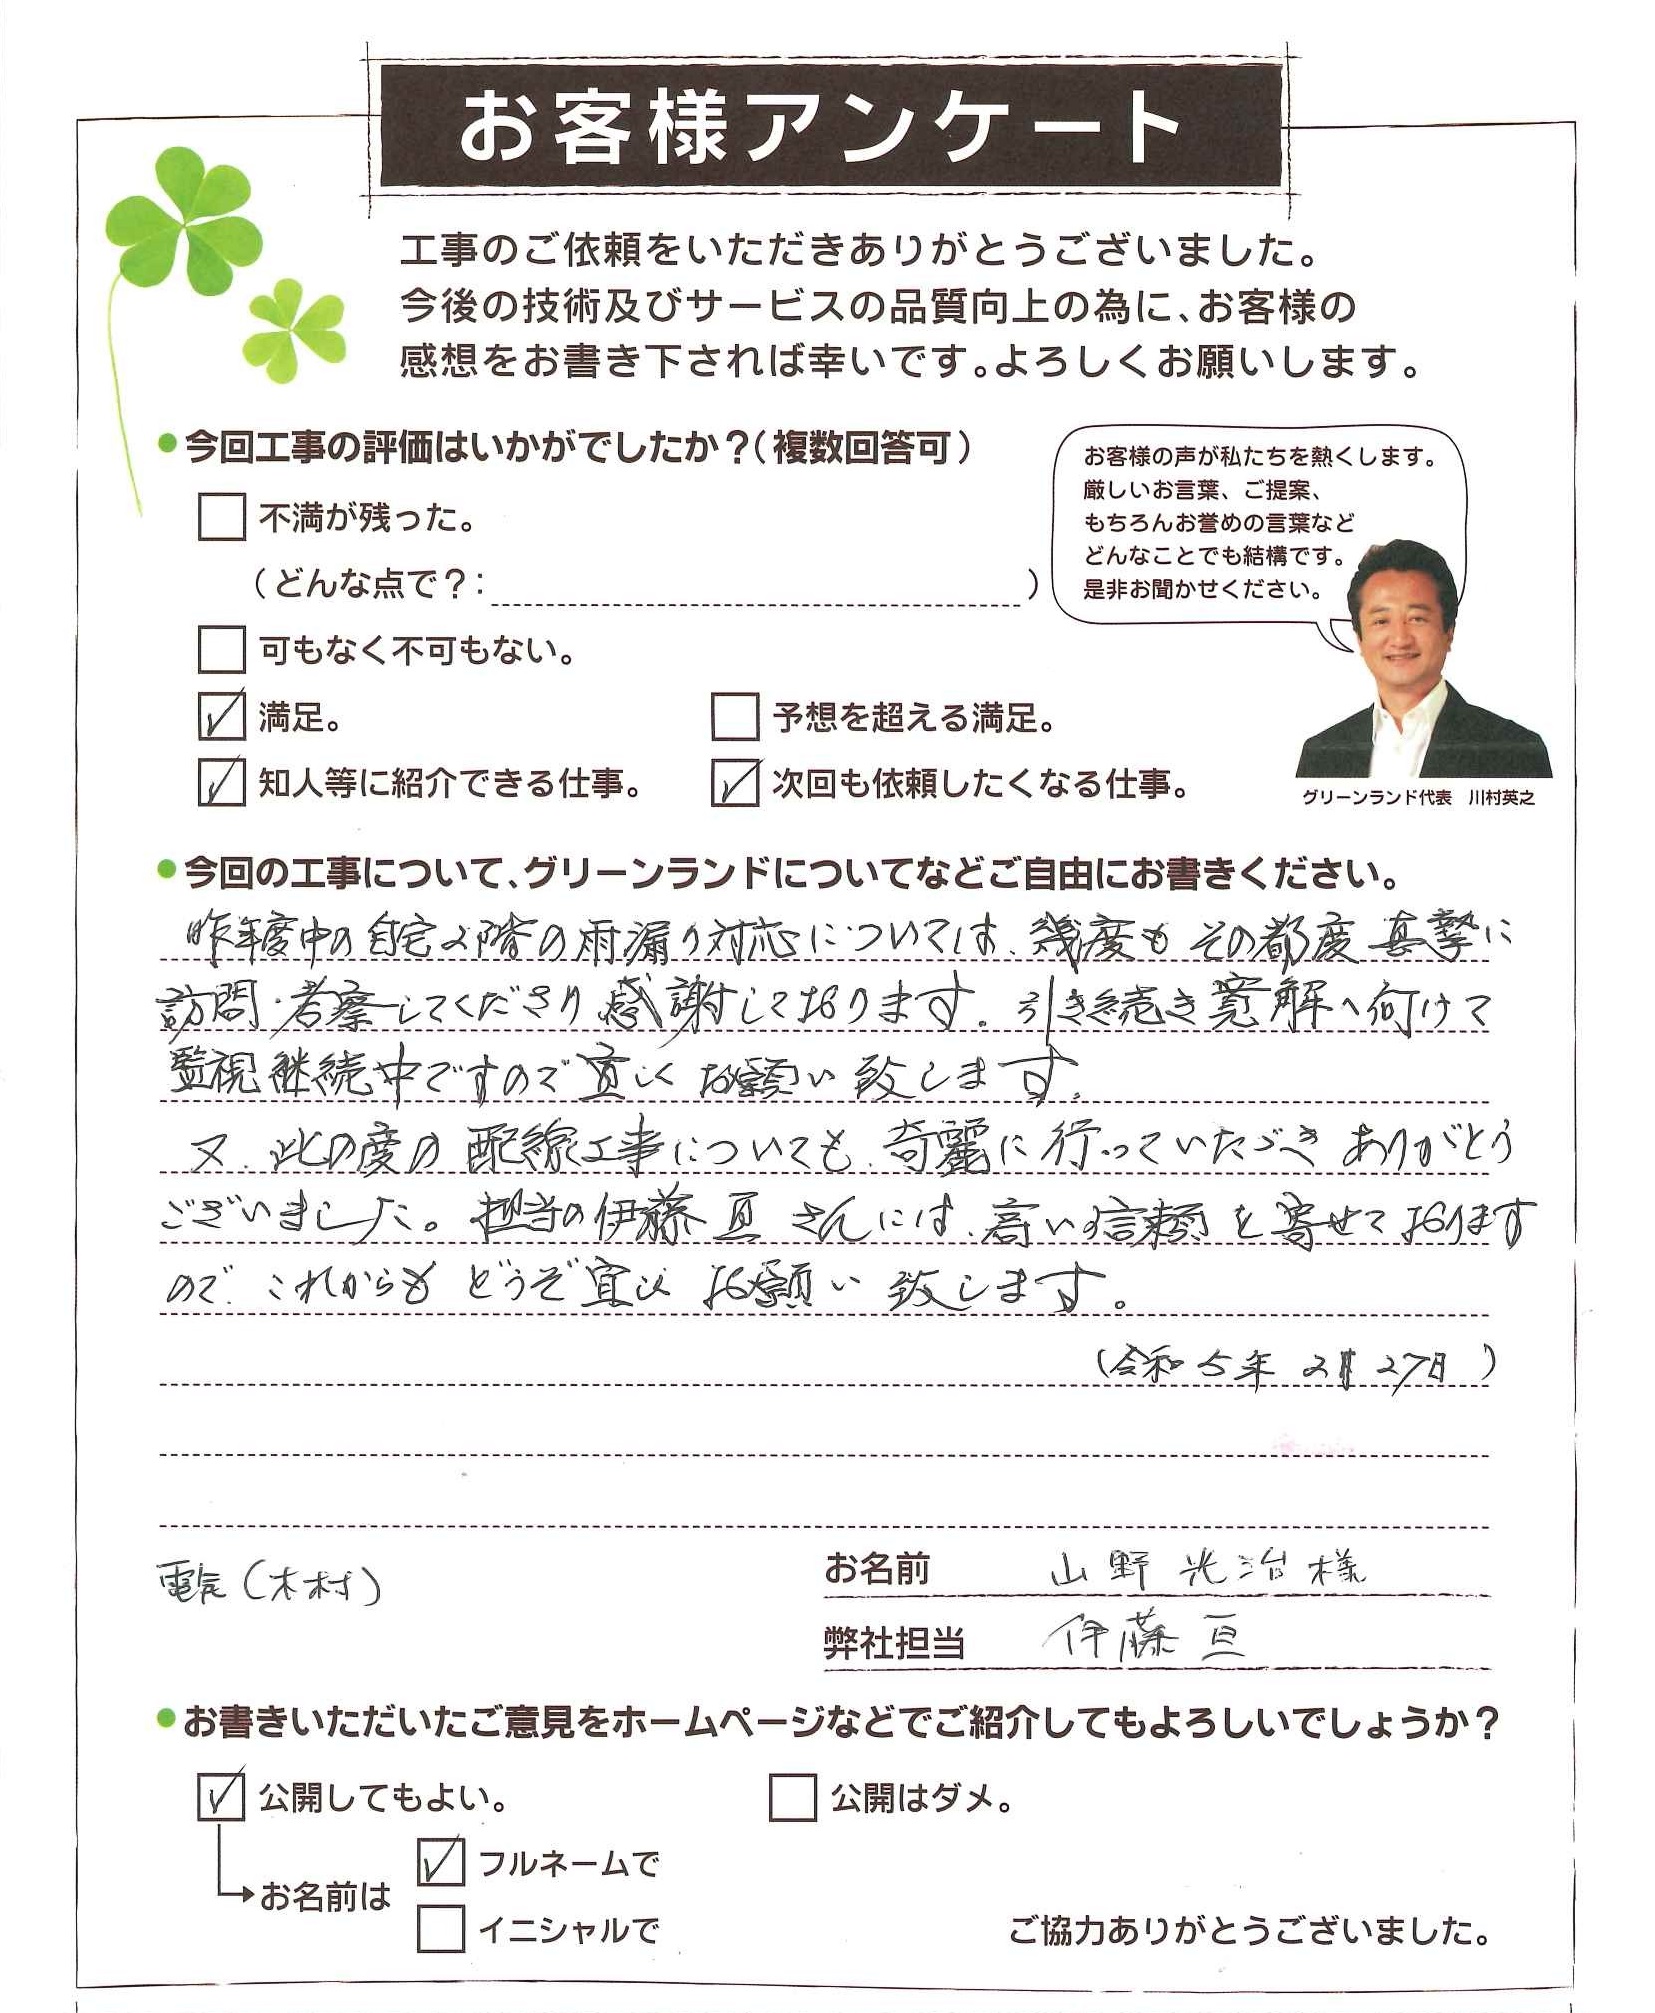 お客様アンケート
工事のご依頼をいただきありがとうございました。
今後の技術及びサービスの品質向上の為に、お客様の
感想をお書き下されば幸いです。よろしくお願いします。
今回工事の評価はいかがでしたか？（複数回答可）
不満が残った。
（どんな点で？：）
可もなく不可もない。
満足。
予想を超える満足。
知人等に紹介できる仕事。
次回も依頼したくなる仕事。
お客様の声が私たちを熱くします。
厳しいお言葉、ご提案、
もちろんお誉めの言葉など
どんなことでも結構です。
是非お聞かせください。
グリーンランド代表　川村英之
今回の工事について、グリーンランドについてなどご自由にお書きください。
昨年度中の自宅2階の雨漏り対応については、幾度もその都度真摯に
訪問・考察してくださり感謝しております。引き続き寛解へ向けて
監視継続中ですので宜しくお願い致します。
又、此の度の配線工事についても、奇麗に行っていただき ありがとう
ございました。担当の伊藤亘さんには、高い信頼を寄せております
ので、これからもどうぞ宜しくお願い致します。
（令和5年2月27日）
電気（木村）
お名前　山野光治様
弊社担当　伊藤亘
お書きいただいたご意見をホームページなどでご紹介してもよろしいでしょうか？
公開してもよい。
公開はダメ。
お名前は
フルネームで
イニシャルで
ご協力ありがとうございました。